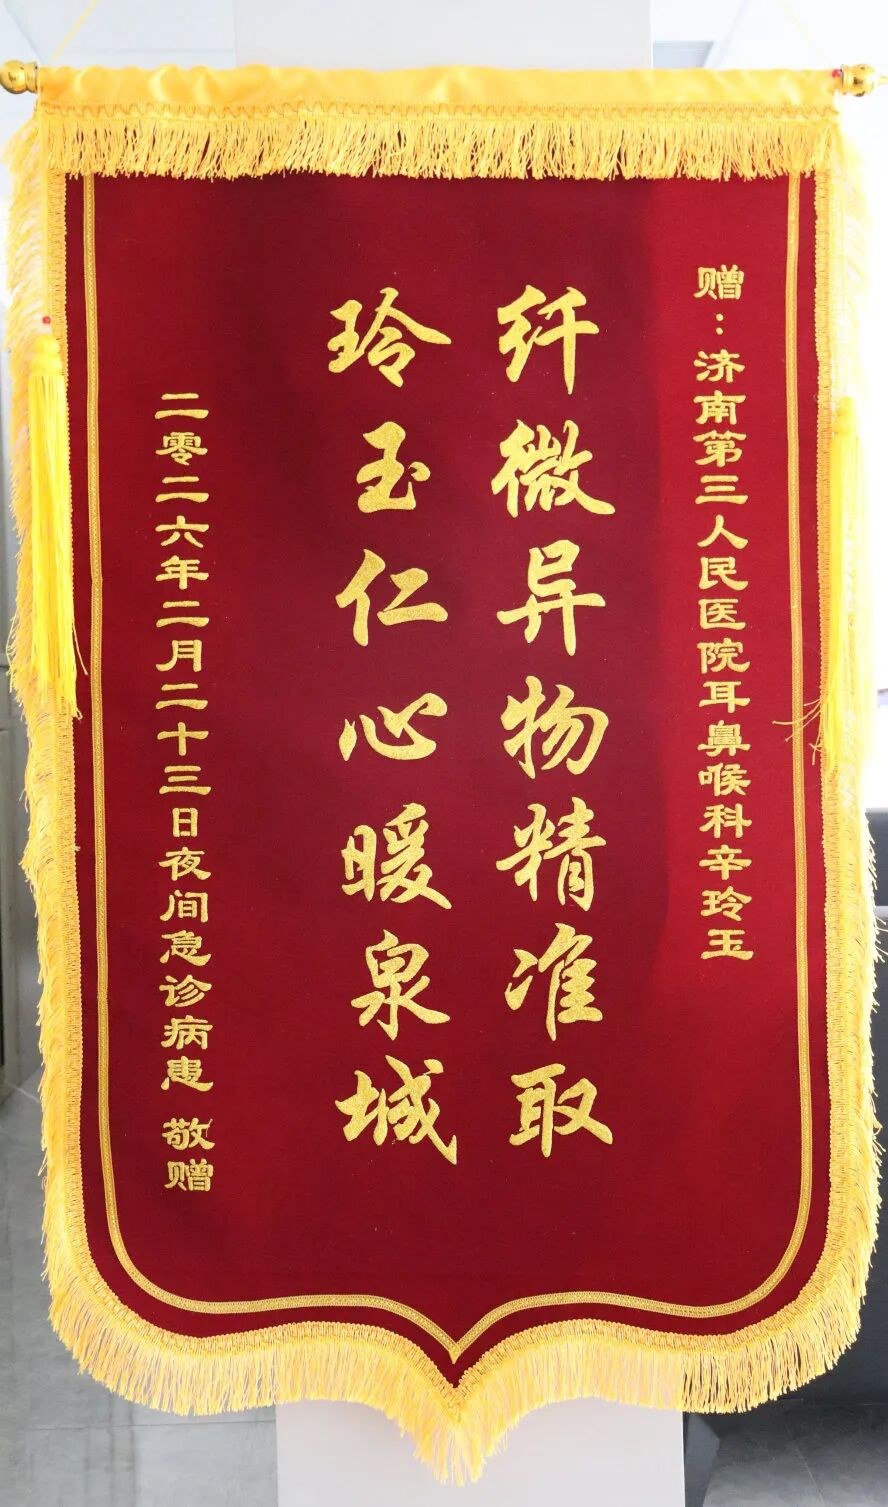 赠：济南第三人民医院耳鼻喉科辛玲玉
纤微异物精准取
玲玉仁心暖泉城
二零二六年二月二十三日夜间急诊病患 敬赠